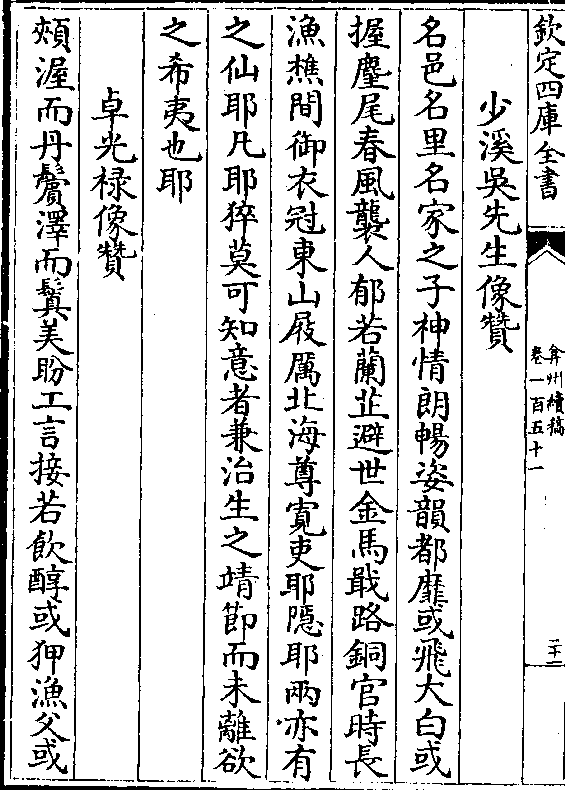 欽定四庫全書
弇州續稿
卷一百五十一
二十二
少溪吳先生像贊
名邑名里名家之子神情朗暢姿韻都靡或飛大白或
握麈尾春風襲人郁若蘭芷避世金馬戢路銅官時長
漁樵間御衣冠東山屐厲北海尊寛吏耶隠耶兩亦有
之仙耶凡耶猝莫可知意者兼治生之靖節而未離欲
之希夷也耶
卓光禄像贊
頰渥而丹鬢澤而鬒美盼工言接若飲醇或狎漁父或